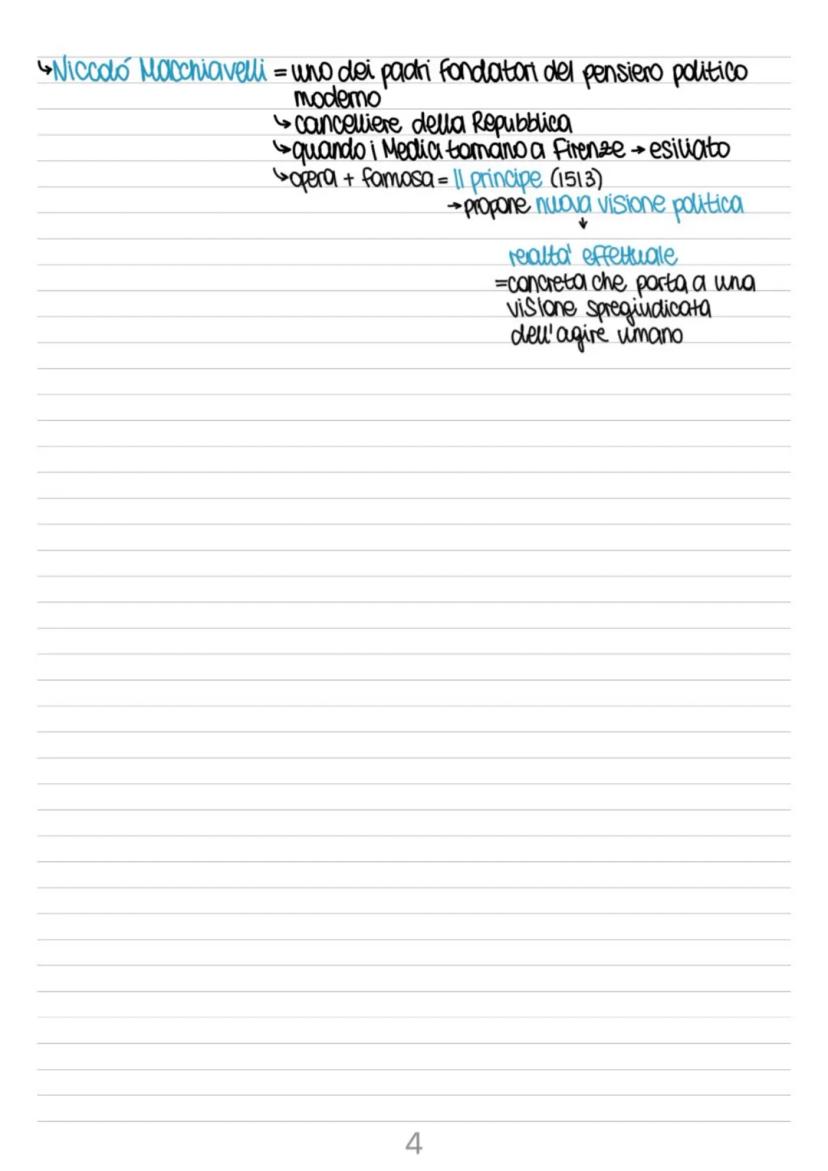 ↳Niccoló Macchiavelli = uno dei padri fondatori del pensiero politico
moderno
↳cancelliere della Repubblica
↳quando i Medici tornano a Firenze → esiliato
↳opera + famosa = Il principe (1513)
→propone nuova visione politica
↓
realta' effettuale
=concreta che porta a una
visione spregiudicata
dell'agire umano
4